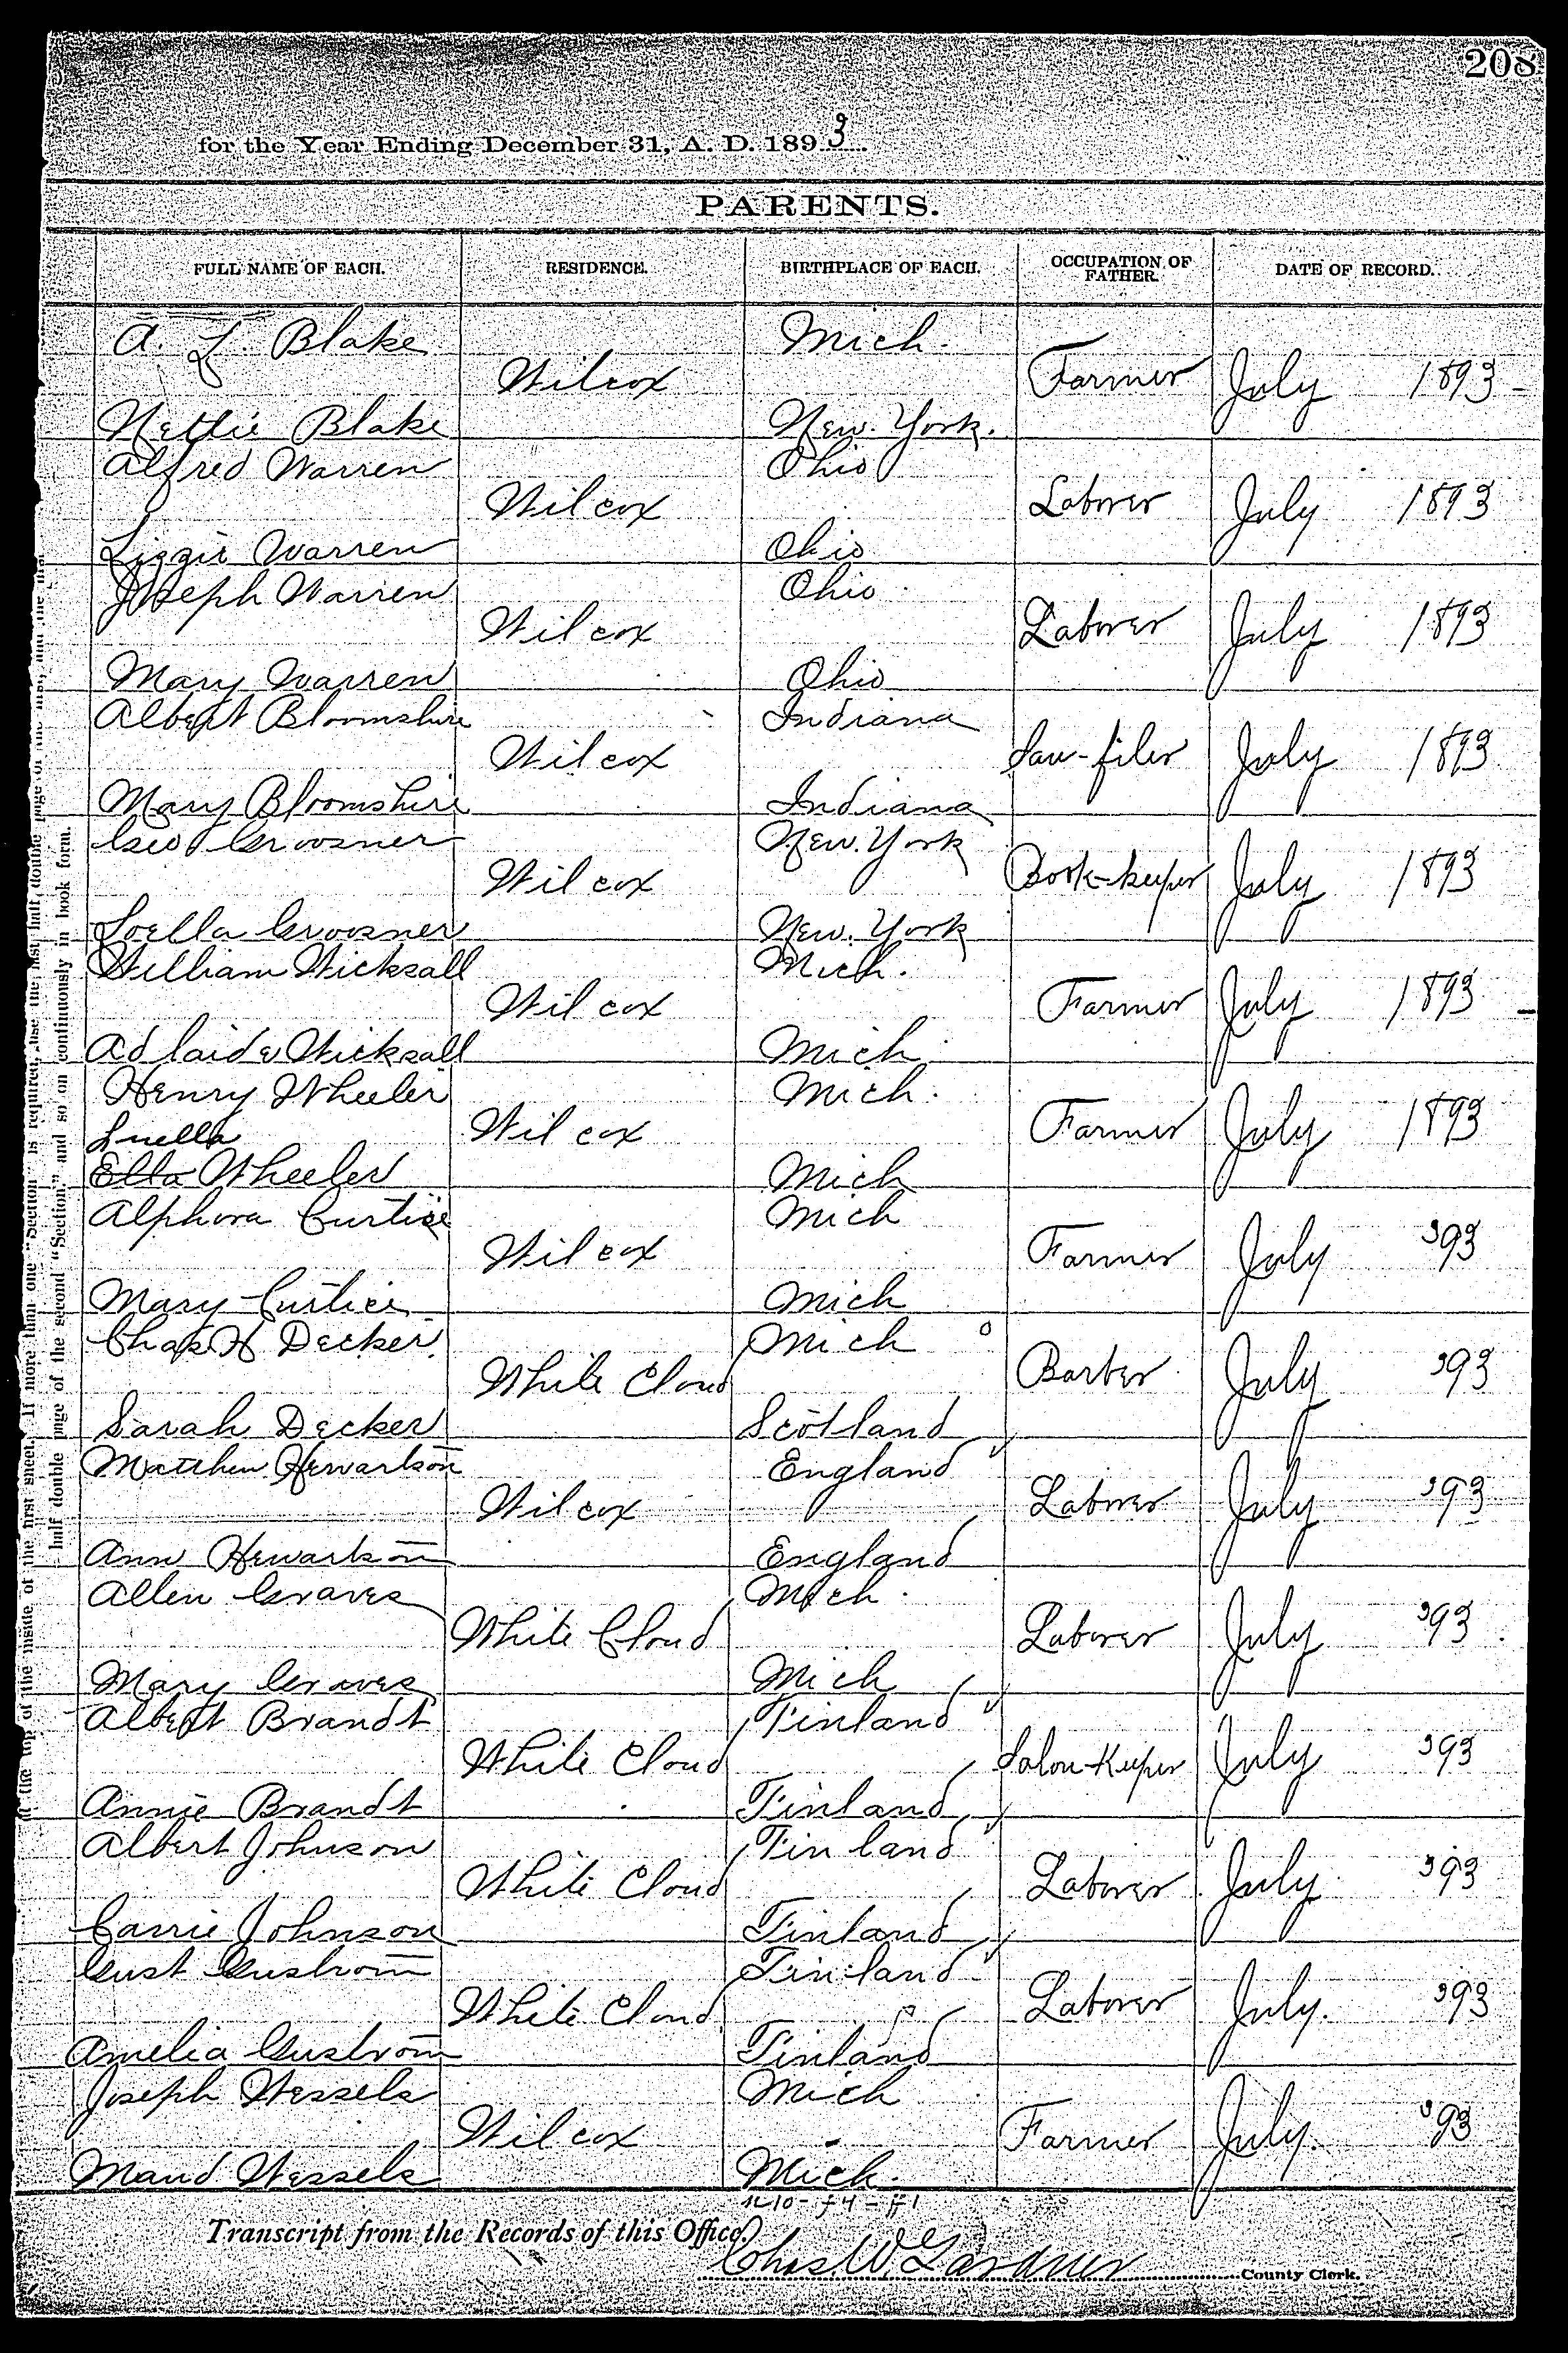 208
for the Year Ending December 31, A. D. 1893
PARENTS.
FULL NAME OF EACH. RESIDENCE. BIRTHPLACE OF EACH. OCCUPATION OF FATHER. DATE OF RECORD.
A. L. Blake Mich.
Wilcox Farmer July 1893
Nettie Blake New York.
Alfred Warren Ohio
Wilcox Laborer July 1893
Lizzie Warren Ohio
Joseph Warren Ohio
Wilcox Laborer July 1893
Mary Warren Ohio
Albert Bloomshire Indiana
Wilcox Saw-filer July 1893
Mary Bloomshire Indiana
Geo Groosner New York
Wilcox Book-keeper July 1893
Loella Groosner New York
William Wicksall Mich.
Wilcox Farmer July 1893
Adlaide Wicksall Mich.
Henry Wheeler Mich.
Luella Wilcox Farmer July 1893
Etta Wheeler Mich
Alphora Curtice Mich
Wilcox Farmer July '93
Mary Curtice Mich
Chas H Decker Mich
White Cloud Barber July '93
Sarah Decker Scotland
Matthew Hewartson England
Wilcox Laborer July '93
Ann Hewartson England
Allen Graves Mich.
White Cloud Laborer July '93
Mary Graves Mich
Albert Brandt Finland
White Cloud Salon-Keeper July '93
Annie Brandt Finland
Albert Johnson Finland
White Cloud Laborer July '93
Carrie Johnson Finland
Gust Gustrom Finland
White Cloud Laborer July. '93
Amelia Gustrom Finland
Joseph Wessels Mich
Wilcox Farmer July. '93
Maud Wessels Mich.
Transcript from the Records of this Office.
Chas. W. Gardner County Clerk.
at the top of the inside of the first sheet. If more than one "Section" is required, use the last half double page of
half double page of the second "Section" and so on continuously in book form.